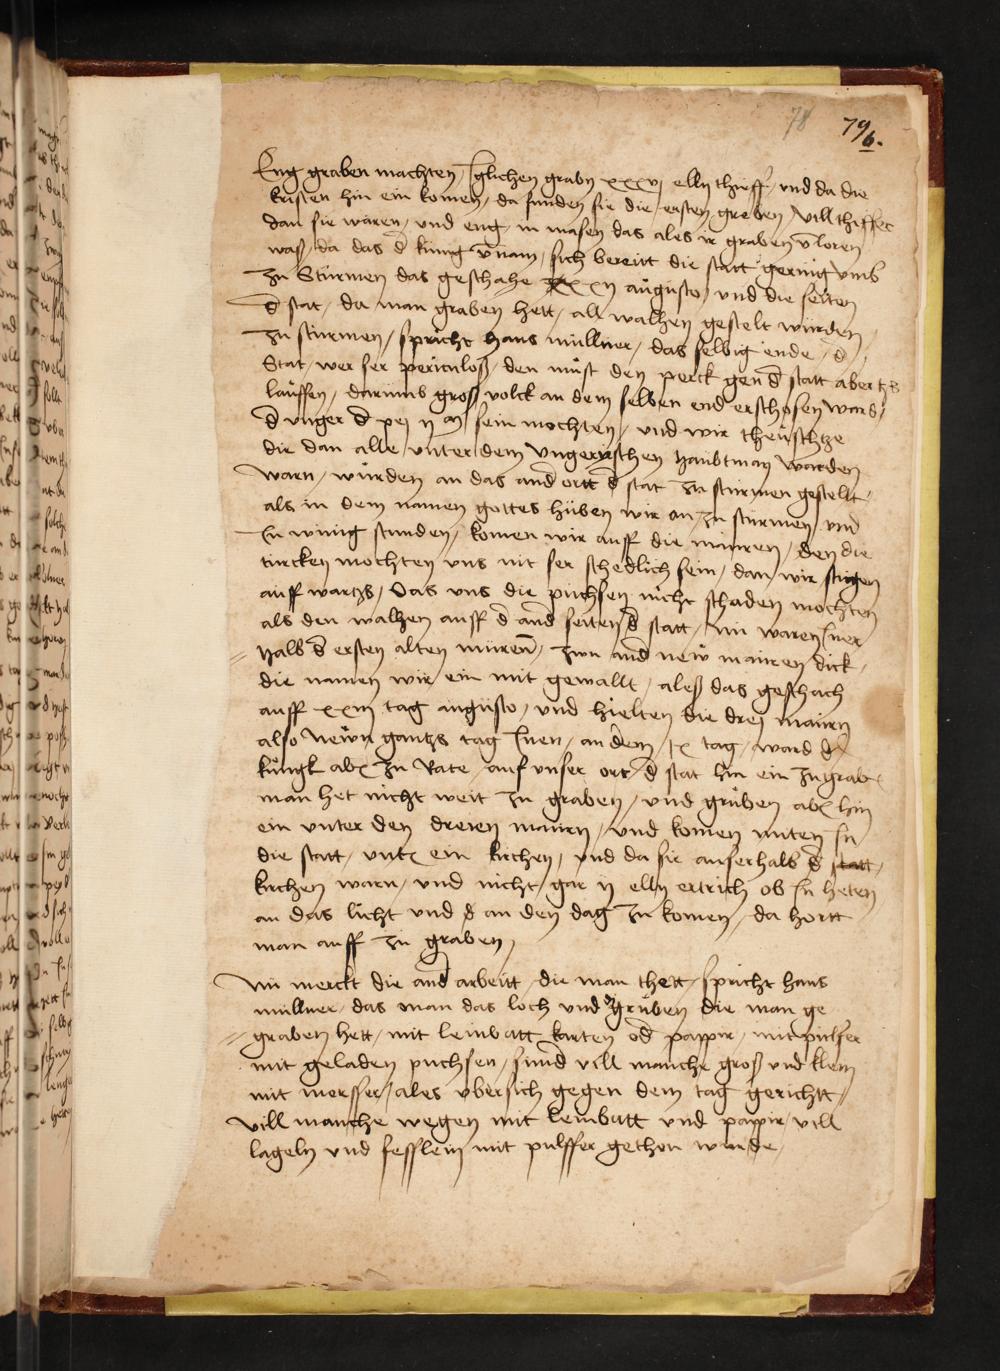 78 79
6.
Eng graben machten / Iglichen grabn xxxvj elln thieff / und da die
kristen hin ein komen / da funden sie die ersten greben / vill thiffer
dan sie waren / und eng / in masen das ales ir graben vloren
wass / da das d kunig vnam / sich bereitt die statt gering vmb
zu Sturmen das geschahe xxij augusto / und die seiten
d stat / da man graben hett / all walhen gestelt wurden /
zu sturmen / spricht hans mullner / das selbig ende / d
Stat / wer ser periculoss / den must den perck gen d statt abertzs
lauffen / darumb gross volck an dem selben end erschosen ward /
d unger d pej ij m sein mochten / und wir theuschtze
die dan alle unter dem ungerischen haubtman warden
warn / wurden an das and ortt d stat zu sturmen gestellt /
als in dem namen gottes huben wir an zu sturmen / und
In winig stunden / komen wir auff die mauren / den die
turcken mochten uns nit ser schedlich sein / dan wir stigen
auff wartzs / das uns die puchsen nicht schaden mochten
als den walhen auff d and seiten d statt / nu waren Iner
halb d ersten alten muren / zwu and new mauren dick /
die namen wir ein mit gewallt / aless das geschach
auff xxiij tag augusto / und hielten die drej maurn
also Newn gantzs tag Inen / an dem ix tag / ward d
kungk ab zu Rate / auf unser ort / d stat hin ein zugrab
man het nicht weit zu graben / und gruben ab hin
ein unter den dreien maurn / und komen miten In
die statt / unt ein kirchen / und da sie auserhalb d statt /
kirchen warn / und nicht gar ij elln ertrich ob In heten
an das licht und d an den dag zu komen / da hortt
man auff zu graben /
Nu merckt die and arbeitt / die man thett / spricht hans
mullner / das man das loch und gruben die man ge
graben hett / mit leinbatt karten od pappir / mit pulfer
mit geladen puchsen / sund vill manche gross und klein
mit mersser / ales ubersich gegen dem tag gerichtt /
vill manche wegen mit leinbatt und pappir / vill
lageln und fesslein mit pulffer gethon wurde /